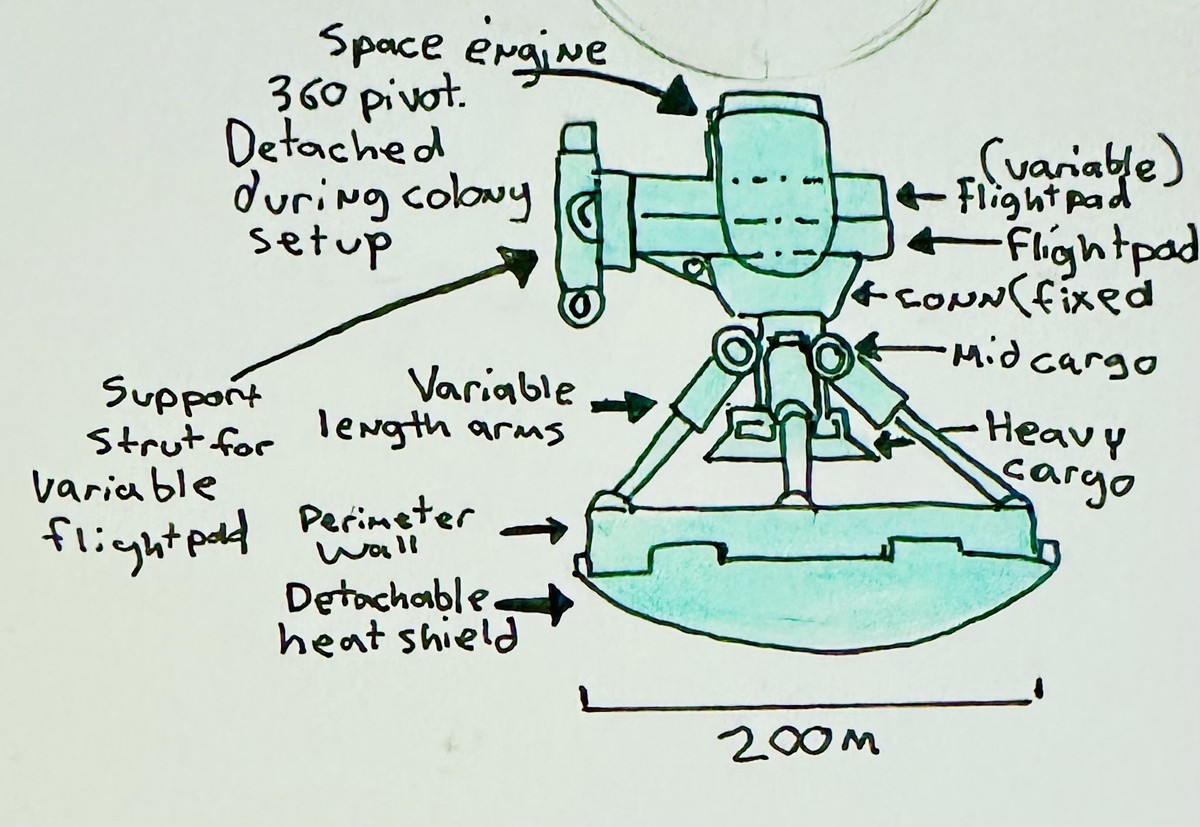 Space engine
360 pivot.
Detached
during colony
setup
(variable)
flightpad
flightpad
CONN(fixed
Mid cargo
Heavy
cargo
Support
strut for
variable
flightpad
Variable
length arms
Perimeter
wall
Detachable
heat shield
200M